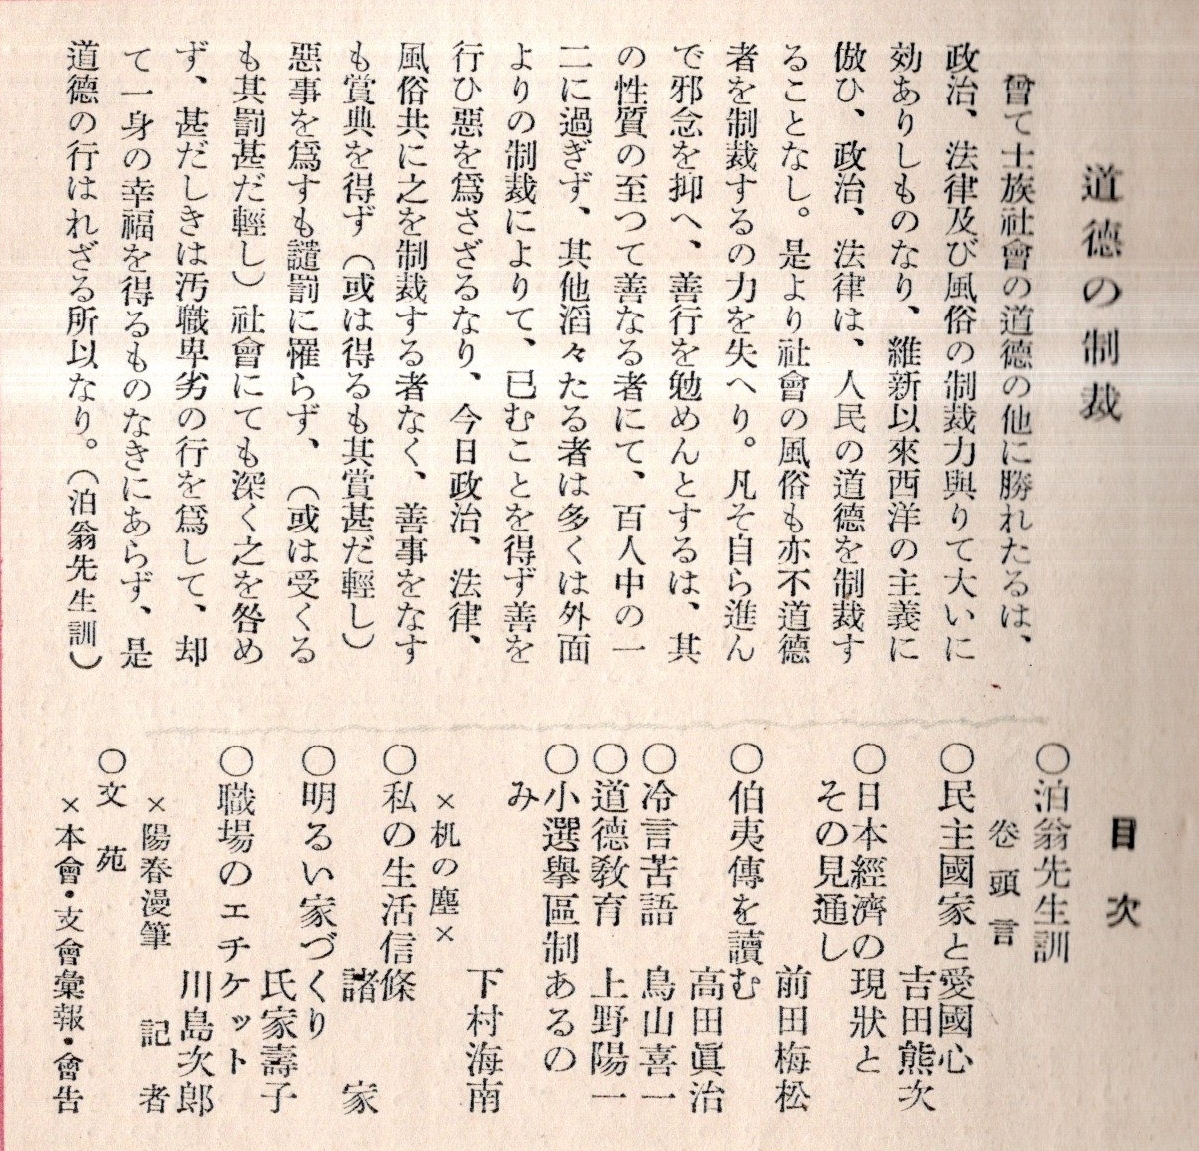 道德の制裁
曾て士族社會の道德の他に勝れたるは、
政治、法律及び風俗の制裁力與りて大いに
効ありしものなり、維新以來西洋の主義に
倣ひ、政治、法律は、人民の道德を制裁す
ることなし。是より社會の風俗も亦不道德
者を制裁するの力を失へり。凡そ自ら進ん
で邪念を抑へ、善行を勉めんとするは、其
の性質の至つて善なる者にて、百人中の一
二に過ぎず、其他滔々たる者は多くは外面
よりの制裁によりて、已むことを得ず善を
行ひ惡を爲さざるなり、今日政治、法律、
風俗共に之を制裁する者なく、善事をなす
も賞典を得ず（或は得るも其賞甚だ輕し）
惡事を爲すも譴罰に罹らず、（或は受くる
も其罰甚だ輕し）社會にても深く之を咎め
ず、甚だしきは汚職卑劣の行を爲して、却
て一身の幸福を得るものなきにあらず、是
道德の行はれざる所以なり。（泊翁先生訓）
目次
〇泊翁先生訓
卷頭言
〇民主國家と愛國心
吉田熊次
〇日本經濟の現狀と
その見通し
前田梅松
〇伯夷傳を讀む
高田眞治
〇冷言苦語 鳥山喜一
〇道德敎育 上野陽一
〇小選擧區制あるの
み
下村海南
×机の塵×
〇私の生活信條
諸家
〇明るい家づくり
氏家壽子
〇職場のエチケット
川島次郎
×陽春漫筆 記者
〇文苑
×本會・支會彙報・會告